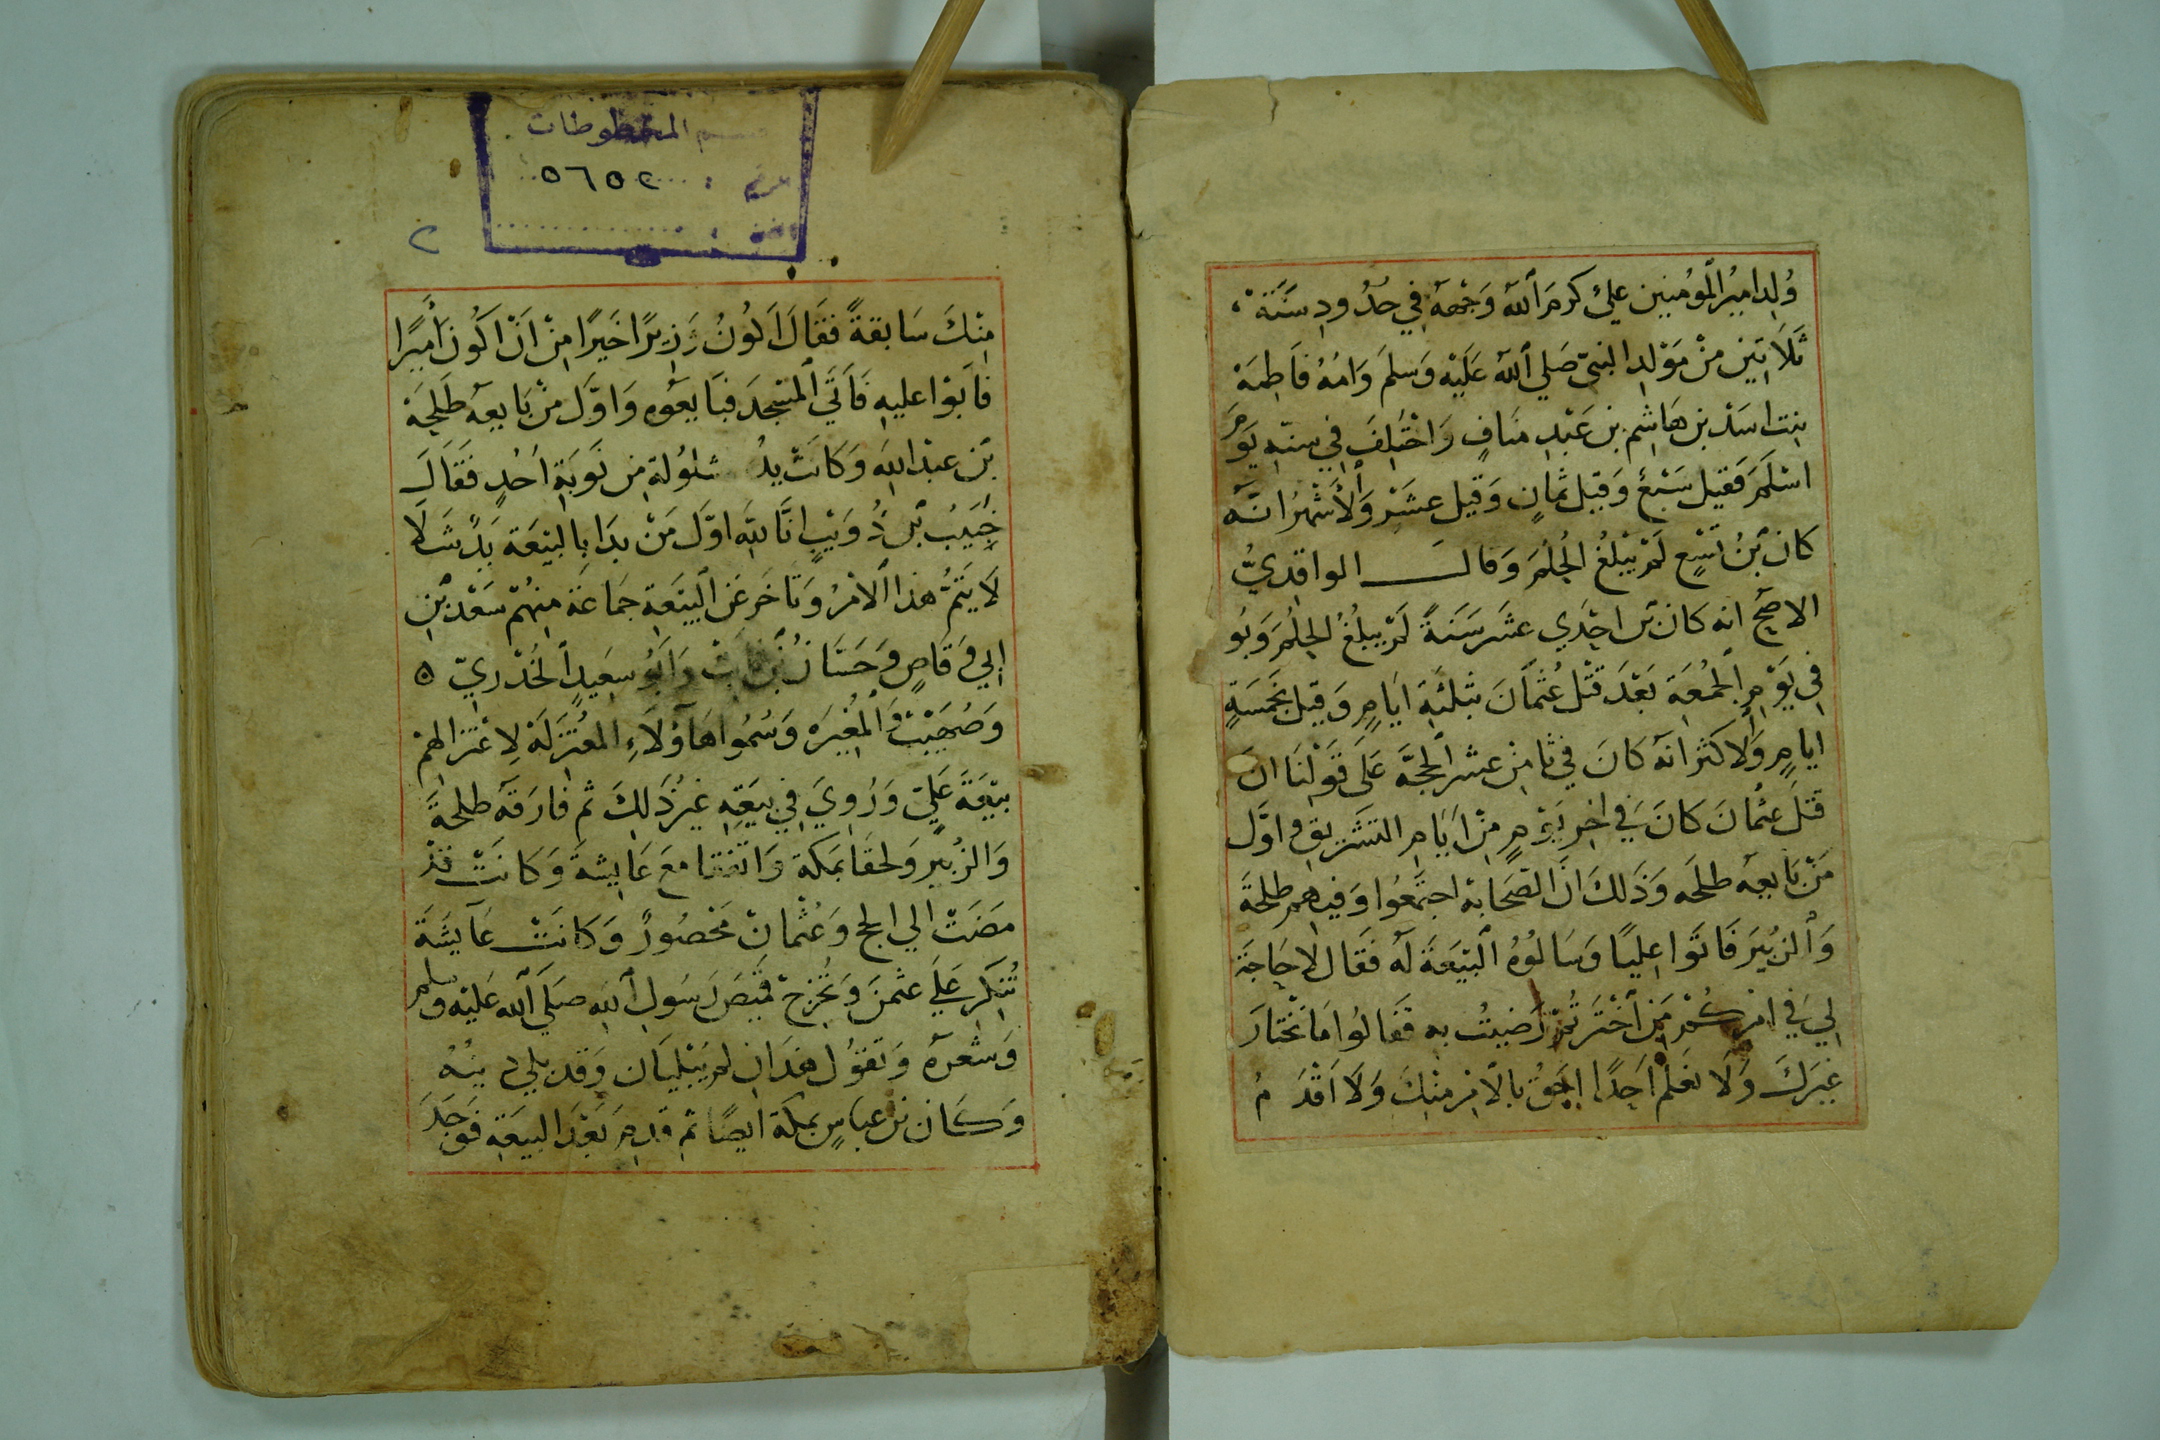 وُلِدَ امِيرُ الْمُؤمِنين علي كرمَ اللهُ وَجْهَهُ فِي حُدُودِ سَنَة
ثَلَاثِينِ مِنْ مَوْلِدِ النبيّ صَلي اللهُ عَلَيْه وَسلمَ وَامُهُ فَاطِمَة
بنت اسَدْ بن هَاشِم بن عَبْدِ مَنافٍ وَاخْتُلِفَ فِي سِنّهِ يَوْمَ
اسْلَمَ فَقيل سَبْعٌ وَقيِل ثمانٍ وَقيل عِشَرْ وَالأشْهَرُ انّهُ
كانَ بْنُ تسْعٍ لَمْ يَبْلُغُ الحُلُمَ وَقال الواقِديُّ
الاصَحّ انه كان بن احْدَي عشَر سَنَةً لَمْ يبلغُ الحلُمَ وَبُو
في يَوْمِ الجُمْعَة بَعْدَ قَتْل عُثمَانَ بثلثةِ ايَامٍ وَقيل بخَمسَةِ
ايامٍ وَالاكثرانهُ كَانَ فيْ ثامِنْ عشر الحجَّة عَلَى قَوْلِنَا ان
قَتْلَ عثمانَ كانَ فِي اخِرِ يَوْمٍ مِنْ ايَامِ التشْرِيقِ واوَّل
مَنْ بَايعهُ طلحَه وَذَلكَ انَّ الصّحَابة اجتمعُوا وَفيهم طلحَةَ
وَالزبُيرَ فَاتَوا عليًا وَسَالوُهُ البَيْعَةَ لَه فَقال لا حَاجَة
لِي فِي امْرِكُمْ مَن اخْتَرتُمْ رَضيتُ به فقالوُا مَا نَخْتارَ
غيرَكَ وَلَا نعَلمْ احَدًا احَقُ بالامْرِ مِنْكَ وَلَا اقْدَمُ
قسم المخطوطات
رقم : ٥٦٥٢
٢
مِنْكَ سَابقةً فَقالَ اَكُونُ وَزيرًا خَيرًا مِنْ اَنْ اكُونَ أمِيرًا
فابَوْا عليهِ فَاَتَي المسْجدَ فبَايَعُوهِ وَاوَّل مَنْ بَايعهُ طَلحَة
بْن عبْدالله وَكَانَتْ يدُ شلوُلة مِن نَوبَةِ اُحُدٍ فَقالَ
حَبيَبُ بْن ذُوَيْبٍ انَّا للهِ اوّل مَنْ بدَا بِالبيْعَة يَدٌ شَلَا
لَا يَتمُّ هَذا الامْرُ وَتَاخَر عَن البَيْعَةِ جمَاعَة منهُمْ سَعْد بْن
ابي وَقَاصٍ وَحَسَّانُ بْن ثابتْ وَابُو سعيدٍ الخُدْريّ ه
وَصُهَيْبْ وَالْمُغِيرَه وَسُمُوا هَآؤلَاءِ المعْتزلَة لِاعْتزالهمْ
بيْعَةَ عَليّ وَرُوِيَ فِي بيعَتِهِ غيرُ ذَلِكَ ثم فَارَقَه طلحَةَ
وَالزُبير وَلحقَا بمَكة وَاتفقا معَ عَايشةَ وَكَانَتْ قدْ
مضَتْ الي الحج وَعُثمانْ مَحْصُورٌ وَكَانَتْ عَآيشَةَ
تُنكِر عَلَي عثمنَ وَتُخرِج قَميصَ رَسُول الله صَلي الله عَليْه وسلم
وَشعرَهُ وَتقوُل هذَانِ لم يَبْليَان وَقد بلي دينُهُ
وَكَان بن عباسٍ بمكَة ايضًا ثم قدِمَ بَعْدَ البيعَةِ فَوَجَدَ